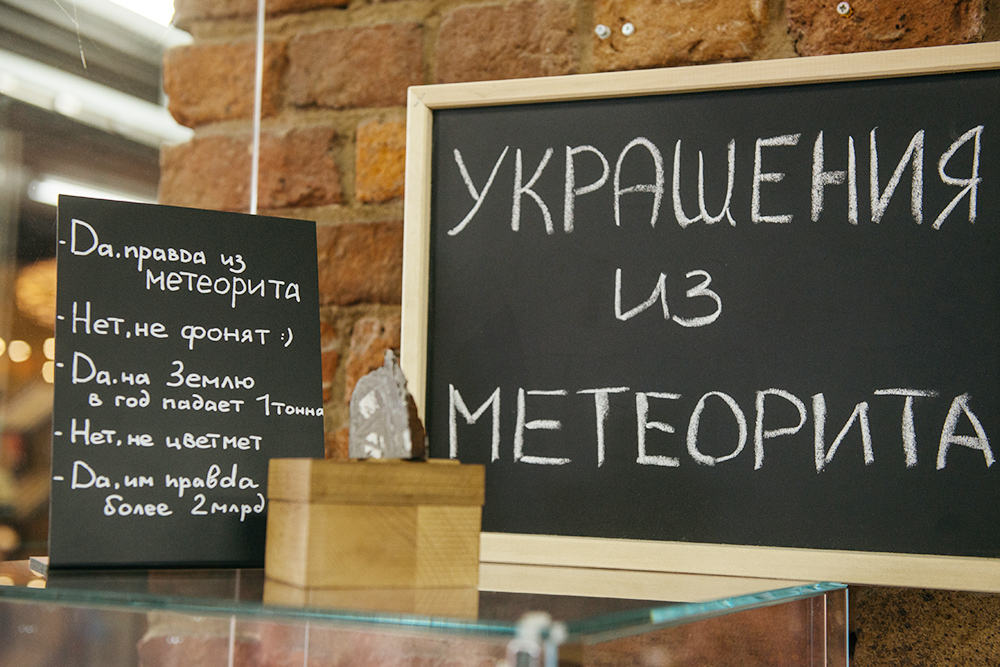 - Да, правда из
метеорита
- Нет, не фонят :)
- Да, на Землю
в год падает 1 тонна
- Нет, не цветмет
- Да, им правда
более 2 млрд
УКРАШЕНИЯ
ИЗ
МЕТЕОРИТА